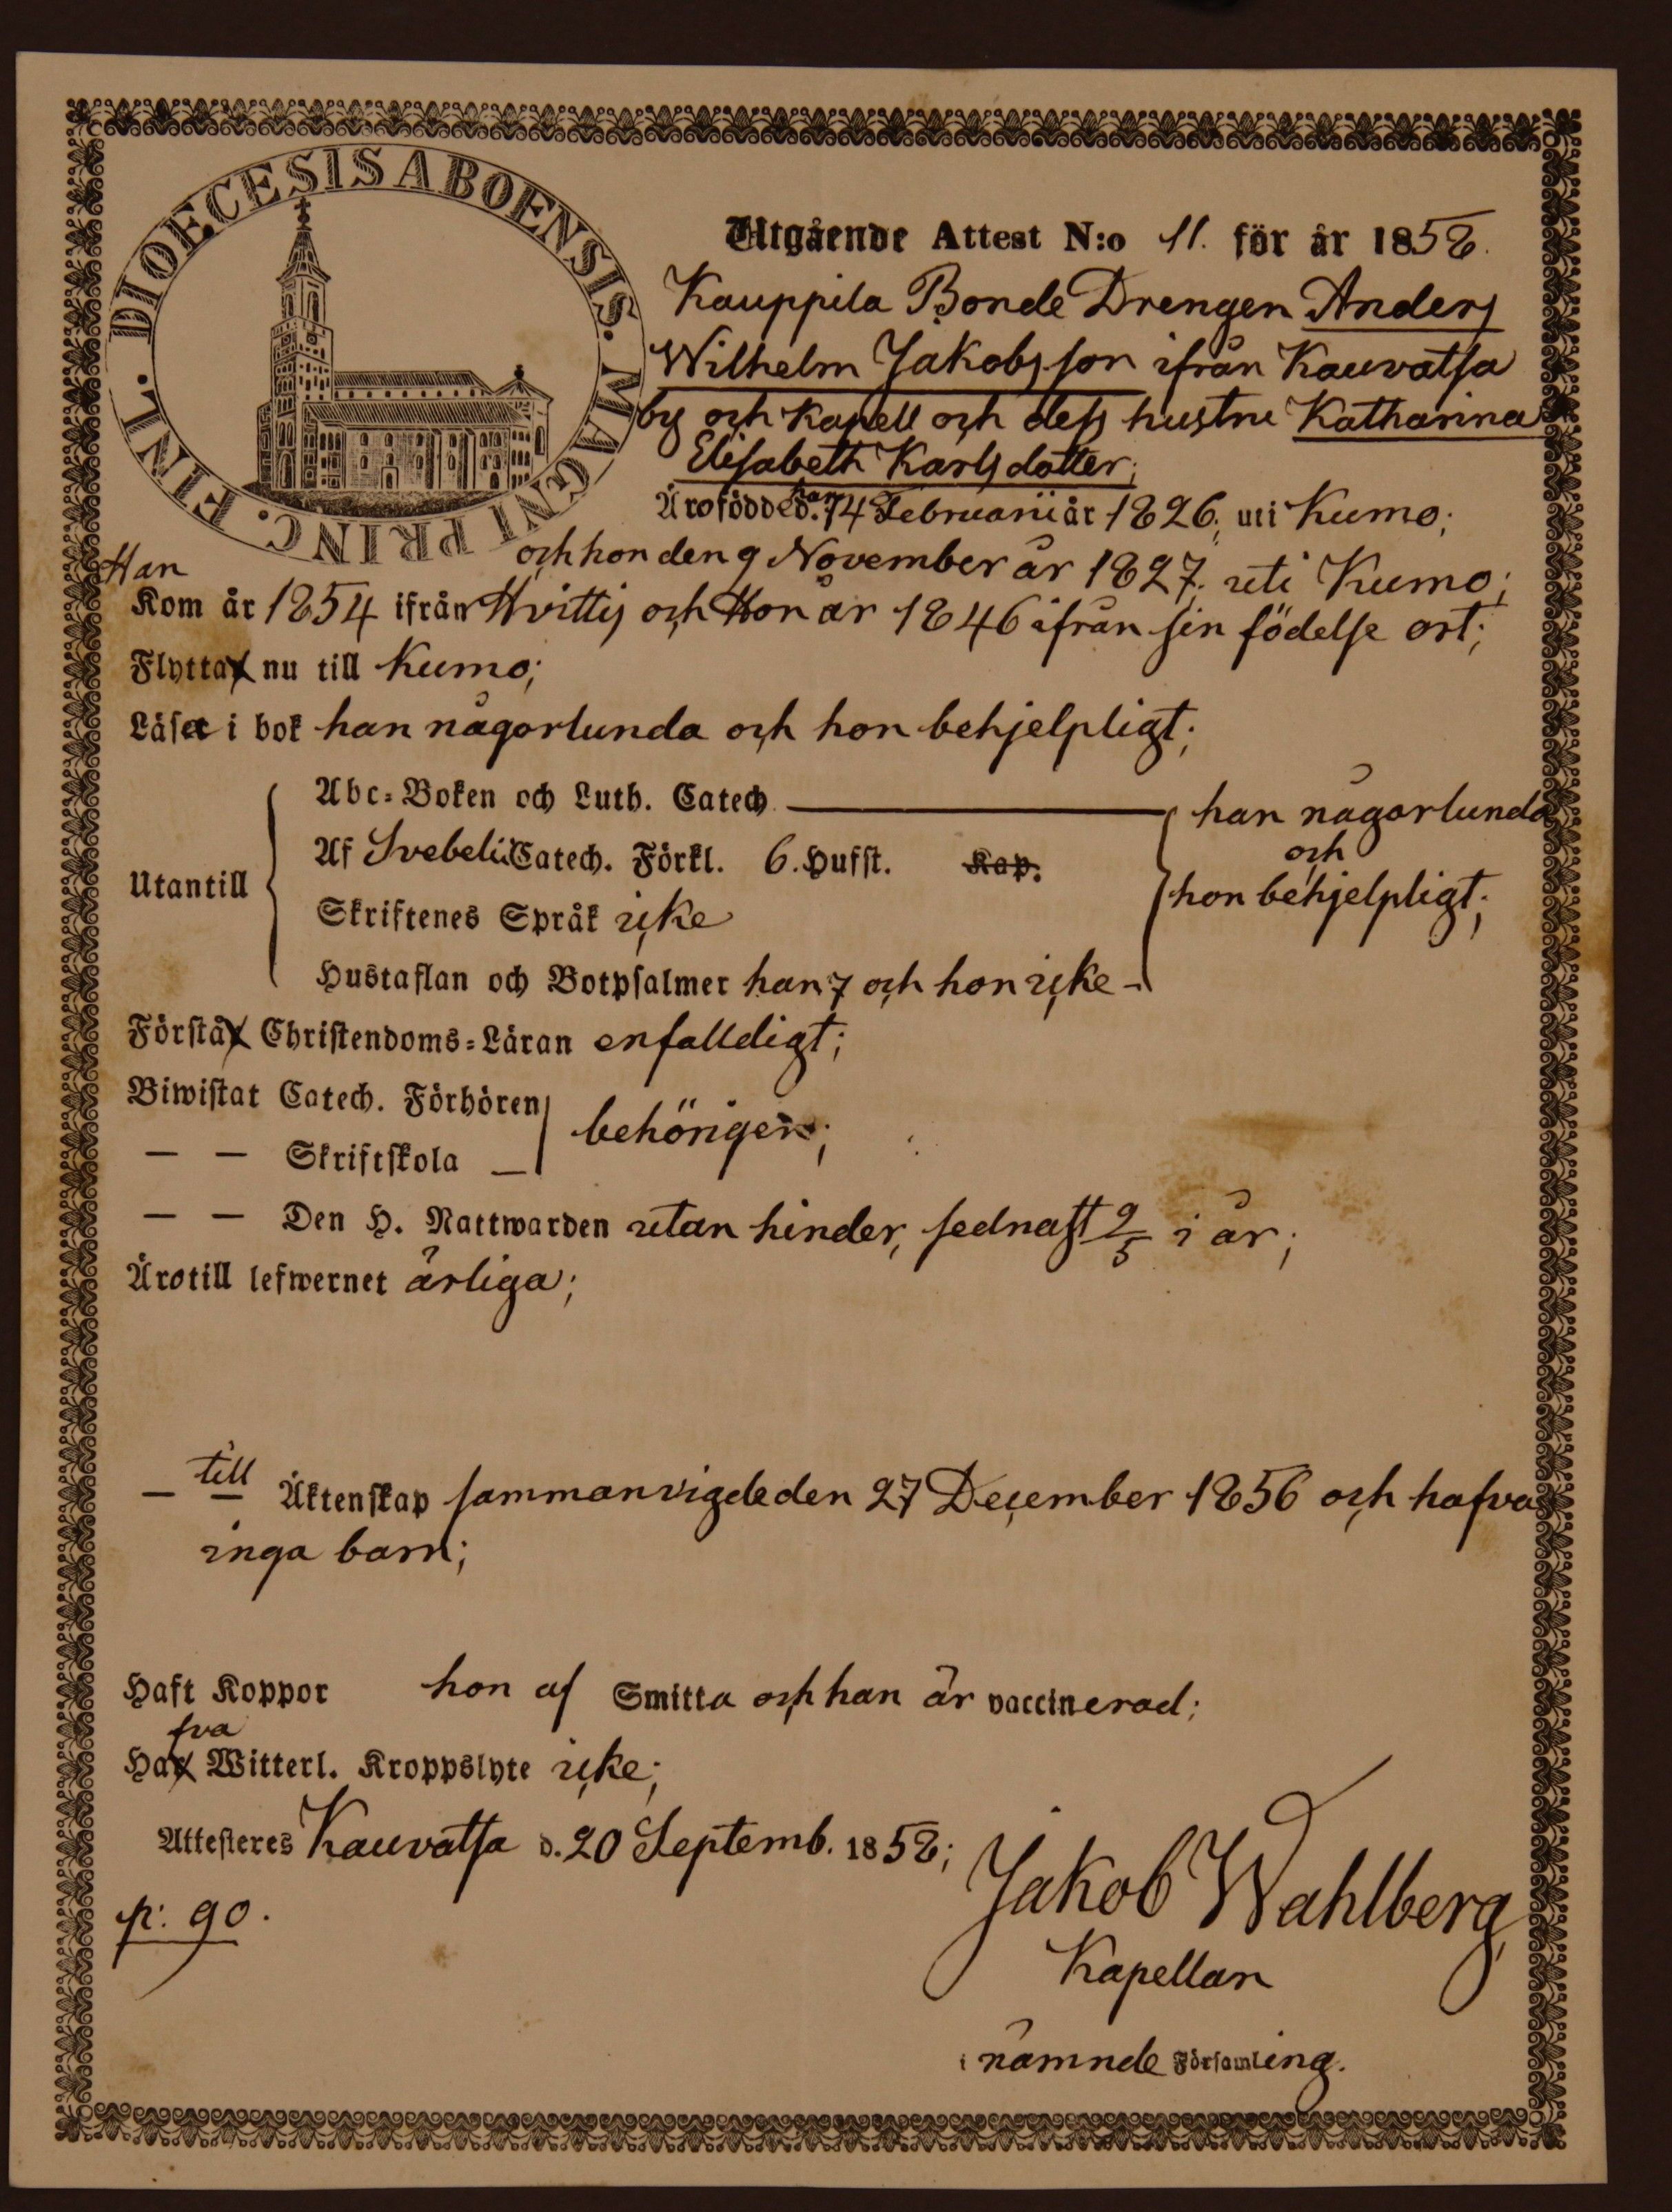 DIOECESIS ABOENSIS. MAGNI PRINC. FINL.
Utgående Attest N:o 11. för år 1858.
Kauppila Bonde Drengen Anders
Wilhelm Jakobsson ifrån Kauvatsa
by och Kapell och dess hustru Katharina
Elisabeth Karlsdotter;
Äro födde han d. 14 Februarii år 1826; uti Kumo;
och hon den 9 November år 1827. uti Kumo;
Han
Kom år 1854 ifrån Hvittis och Hon år 1846 ifrån sin födelse ort;
Flytta nu till Kumo;
Läsa i bok han någorlunda och hon behjelpligt;
Utantill
Abc-Boken och Luth. Catech
Af Svebelii Catech. Förkl. 6. Hufst. Kap.
Skriftenes Språk icke
Hustaflan och Botpsalmer han 7 och hon icke
han någorlunda
och
hon behjelpligt;
Förstå Christendoms-Läran enfalldigt;
Biwistat Catech. Förhören
— — Skriftskola —
behörigen;
— — Den H. Nattwarden utan hinder, sednast 9/5 i år;
Äro till lefwernet ärliga;
— till — Äktenskap sammanvigde den 27 December 1856 och hafva
inga barn;
Haft Koppor hon af Smitta och han är vaccinerad;
fva
Ha Witterl. Kroppslyte icke;
Attesteres Kauvatsa d. 20 Septemb. 1858;
p: 90.
Jakob Wahlberg
Kapellan
i nämnde Församling.